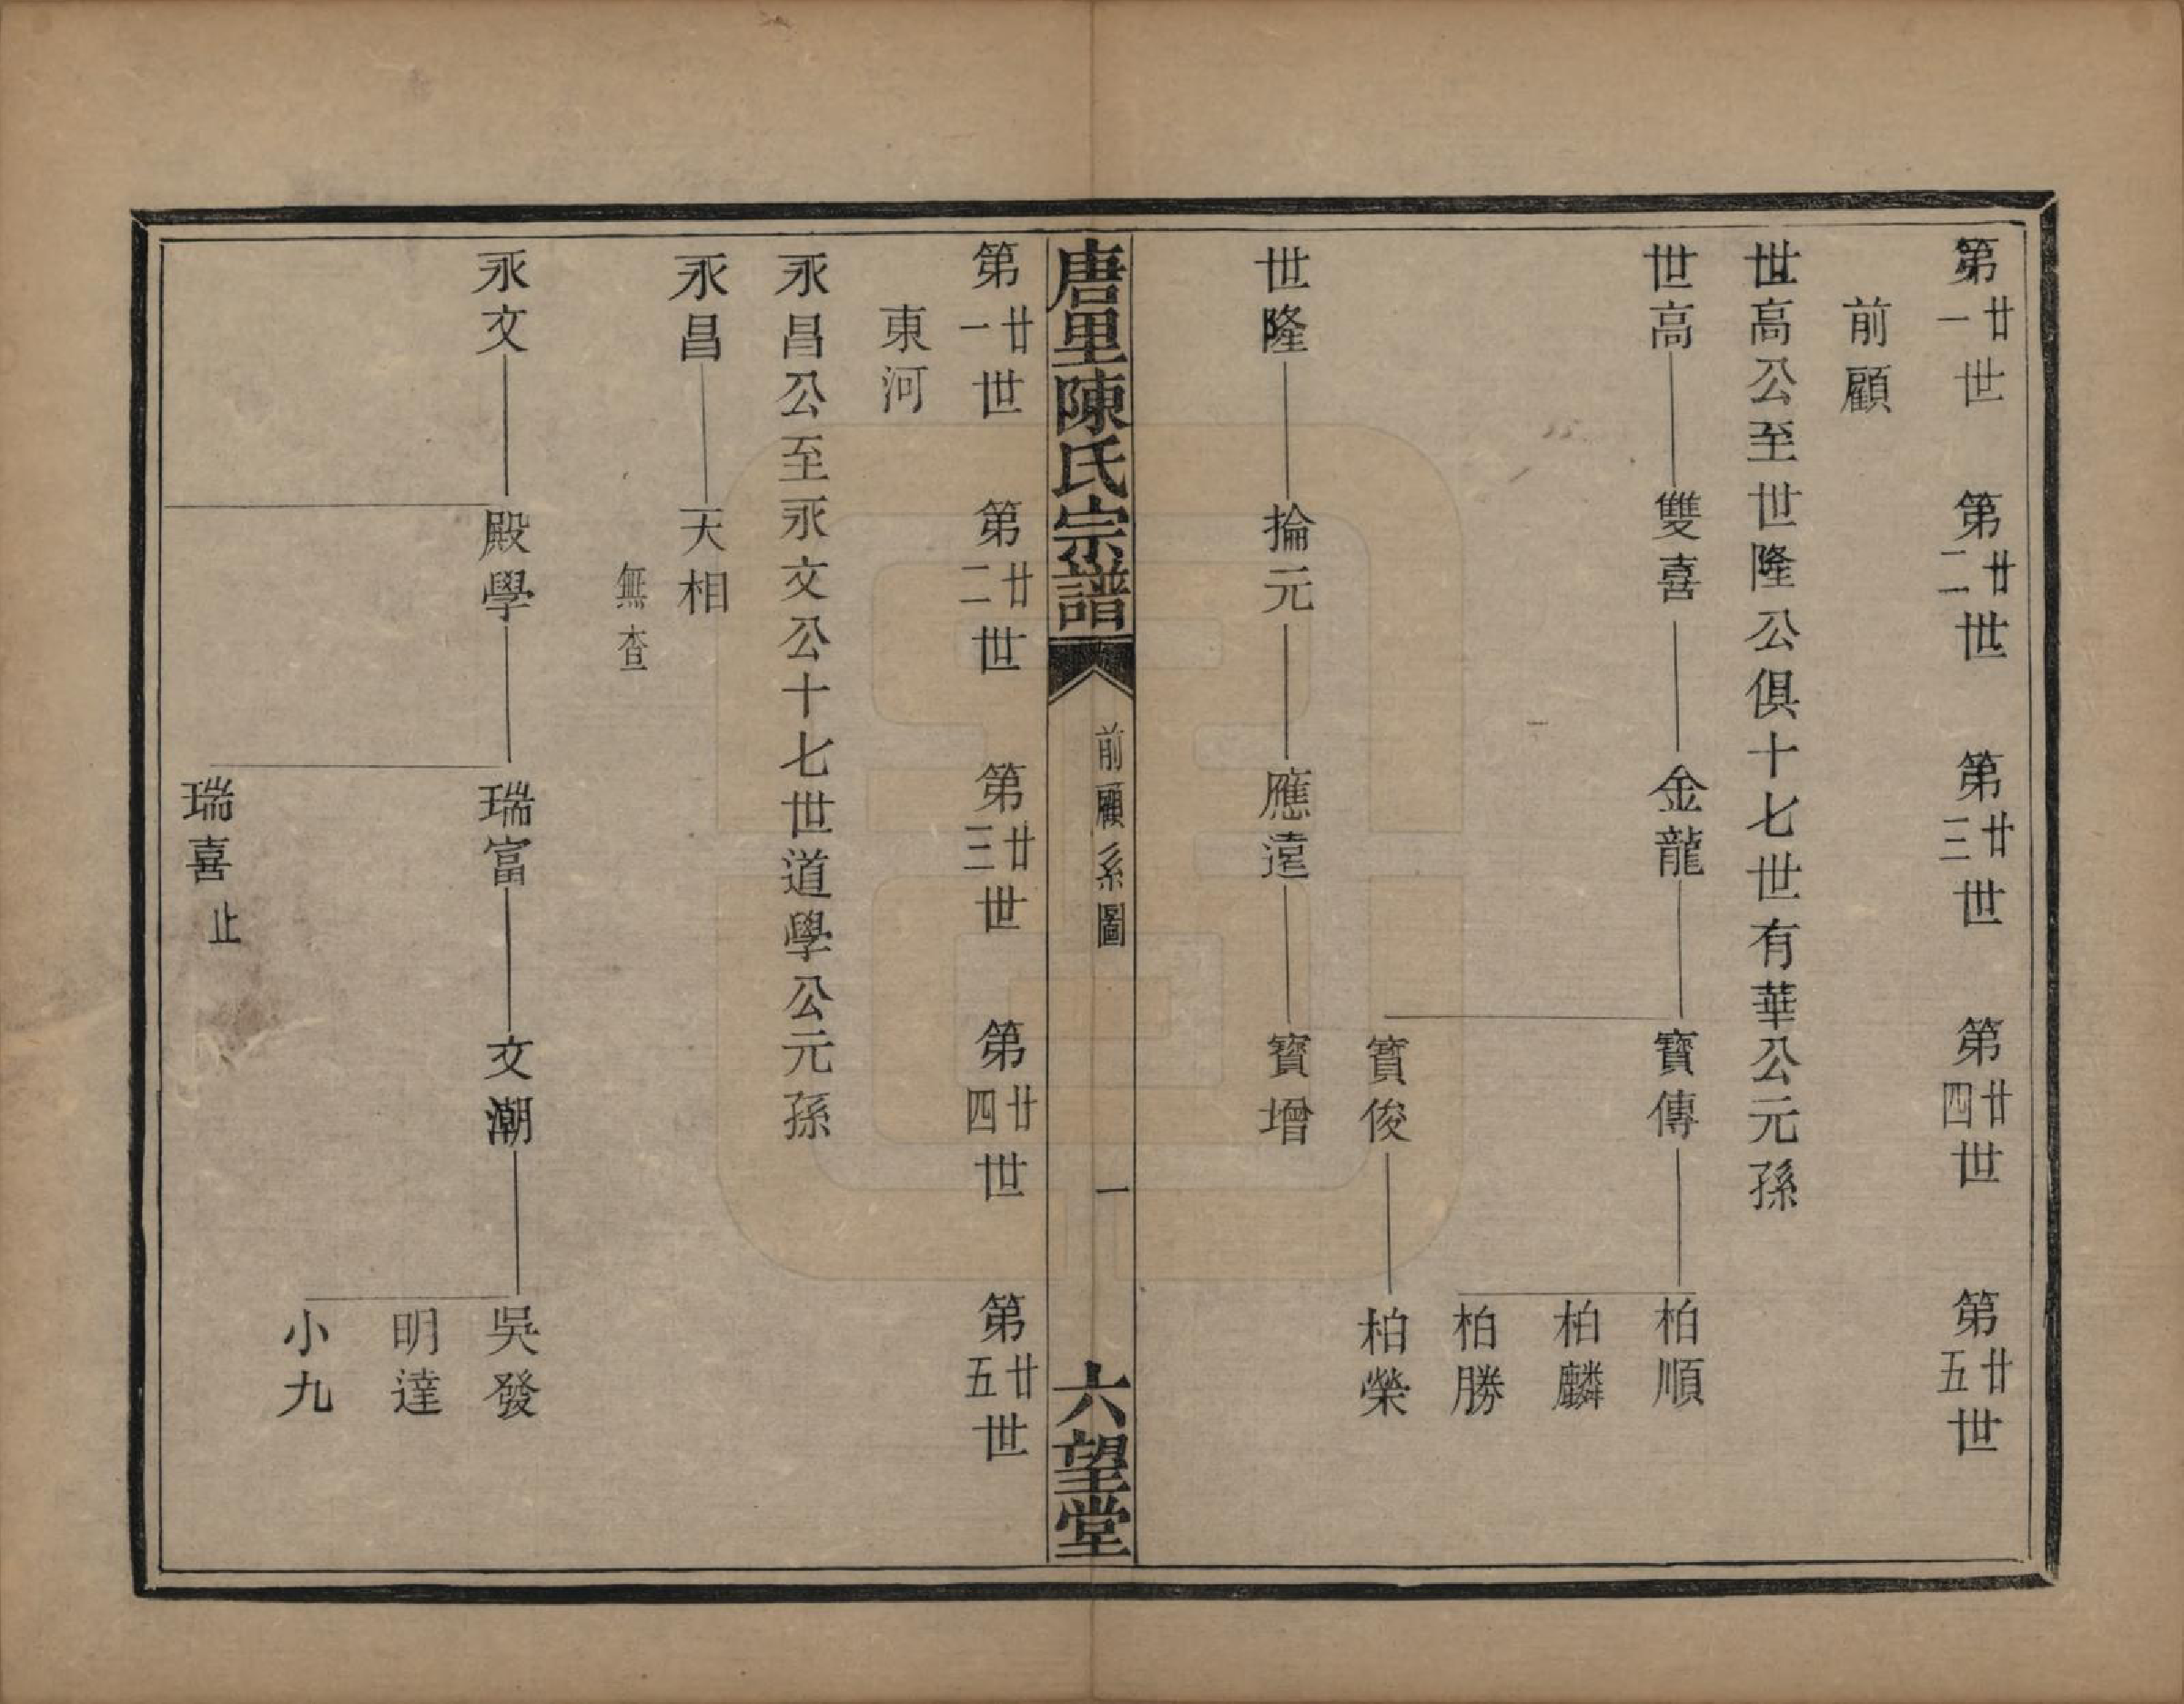 第廿一世　第廿二世　第廿三世　第廿四世　第廿五世
前顧
世高公至世隆公俱十七世有華公元孫
世高　雙喜　金龍　寶傳　柏順
柏麟
柏勝
寶俊　柏榮
世隆　掄元　應遠　寶增
唐里陳氏宗譜　前顧系圖　一　六望堂
第廿一世　第廿二世　第廿三世　第廿四世　第廿五世
東河
永昌公至永文公十七世道學公元孫
永昌　天相
無查
永文　殿學　瑞富　文潮　吳發
明達
小九
瑞喜止